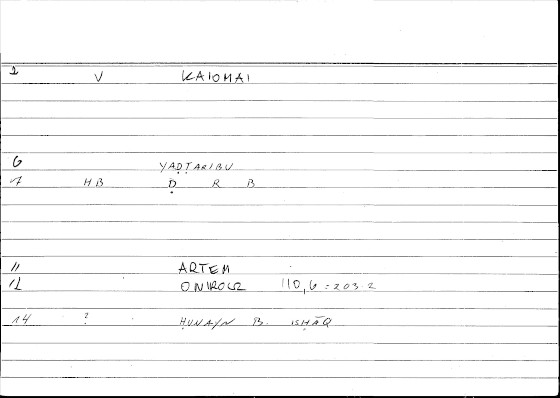 1 V KAIOMAI
6 YAḌṬARIBU
7 HB Ḍ R B
11 ARTEM
12 ONIROCR 110,6 = 203 2
14 ? ḤUNAYN B. ISḤĀQ